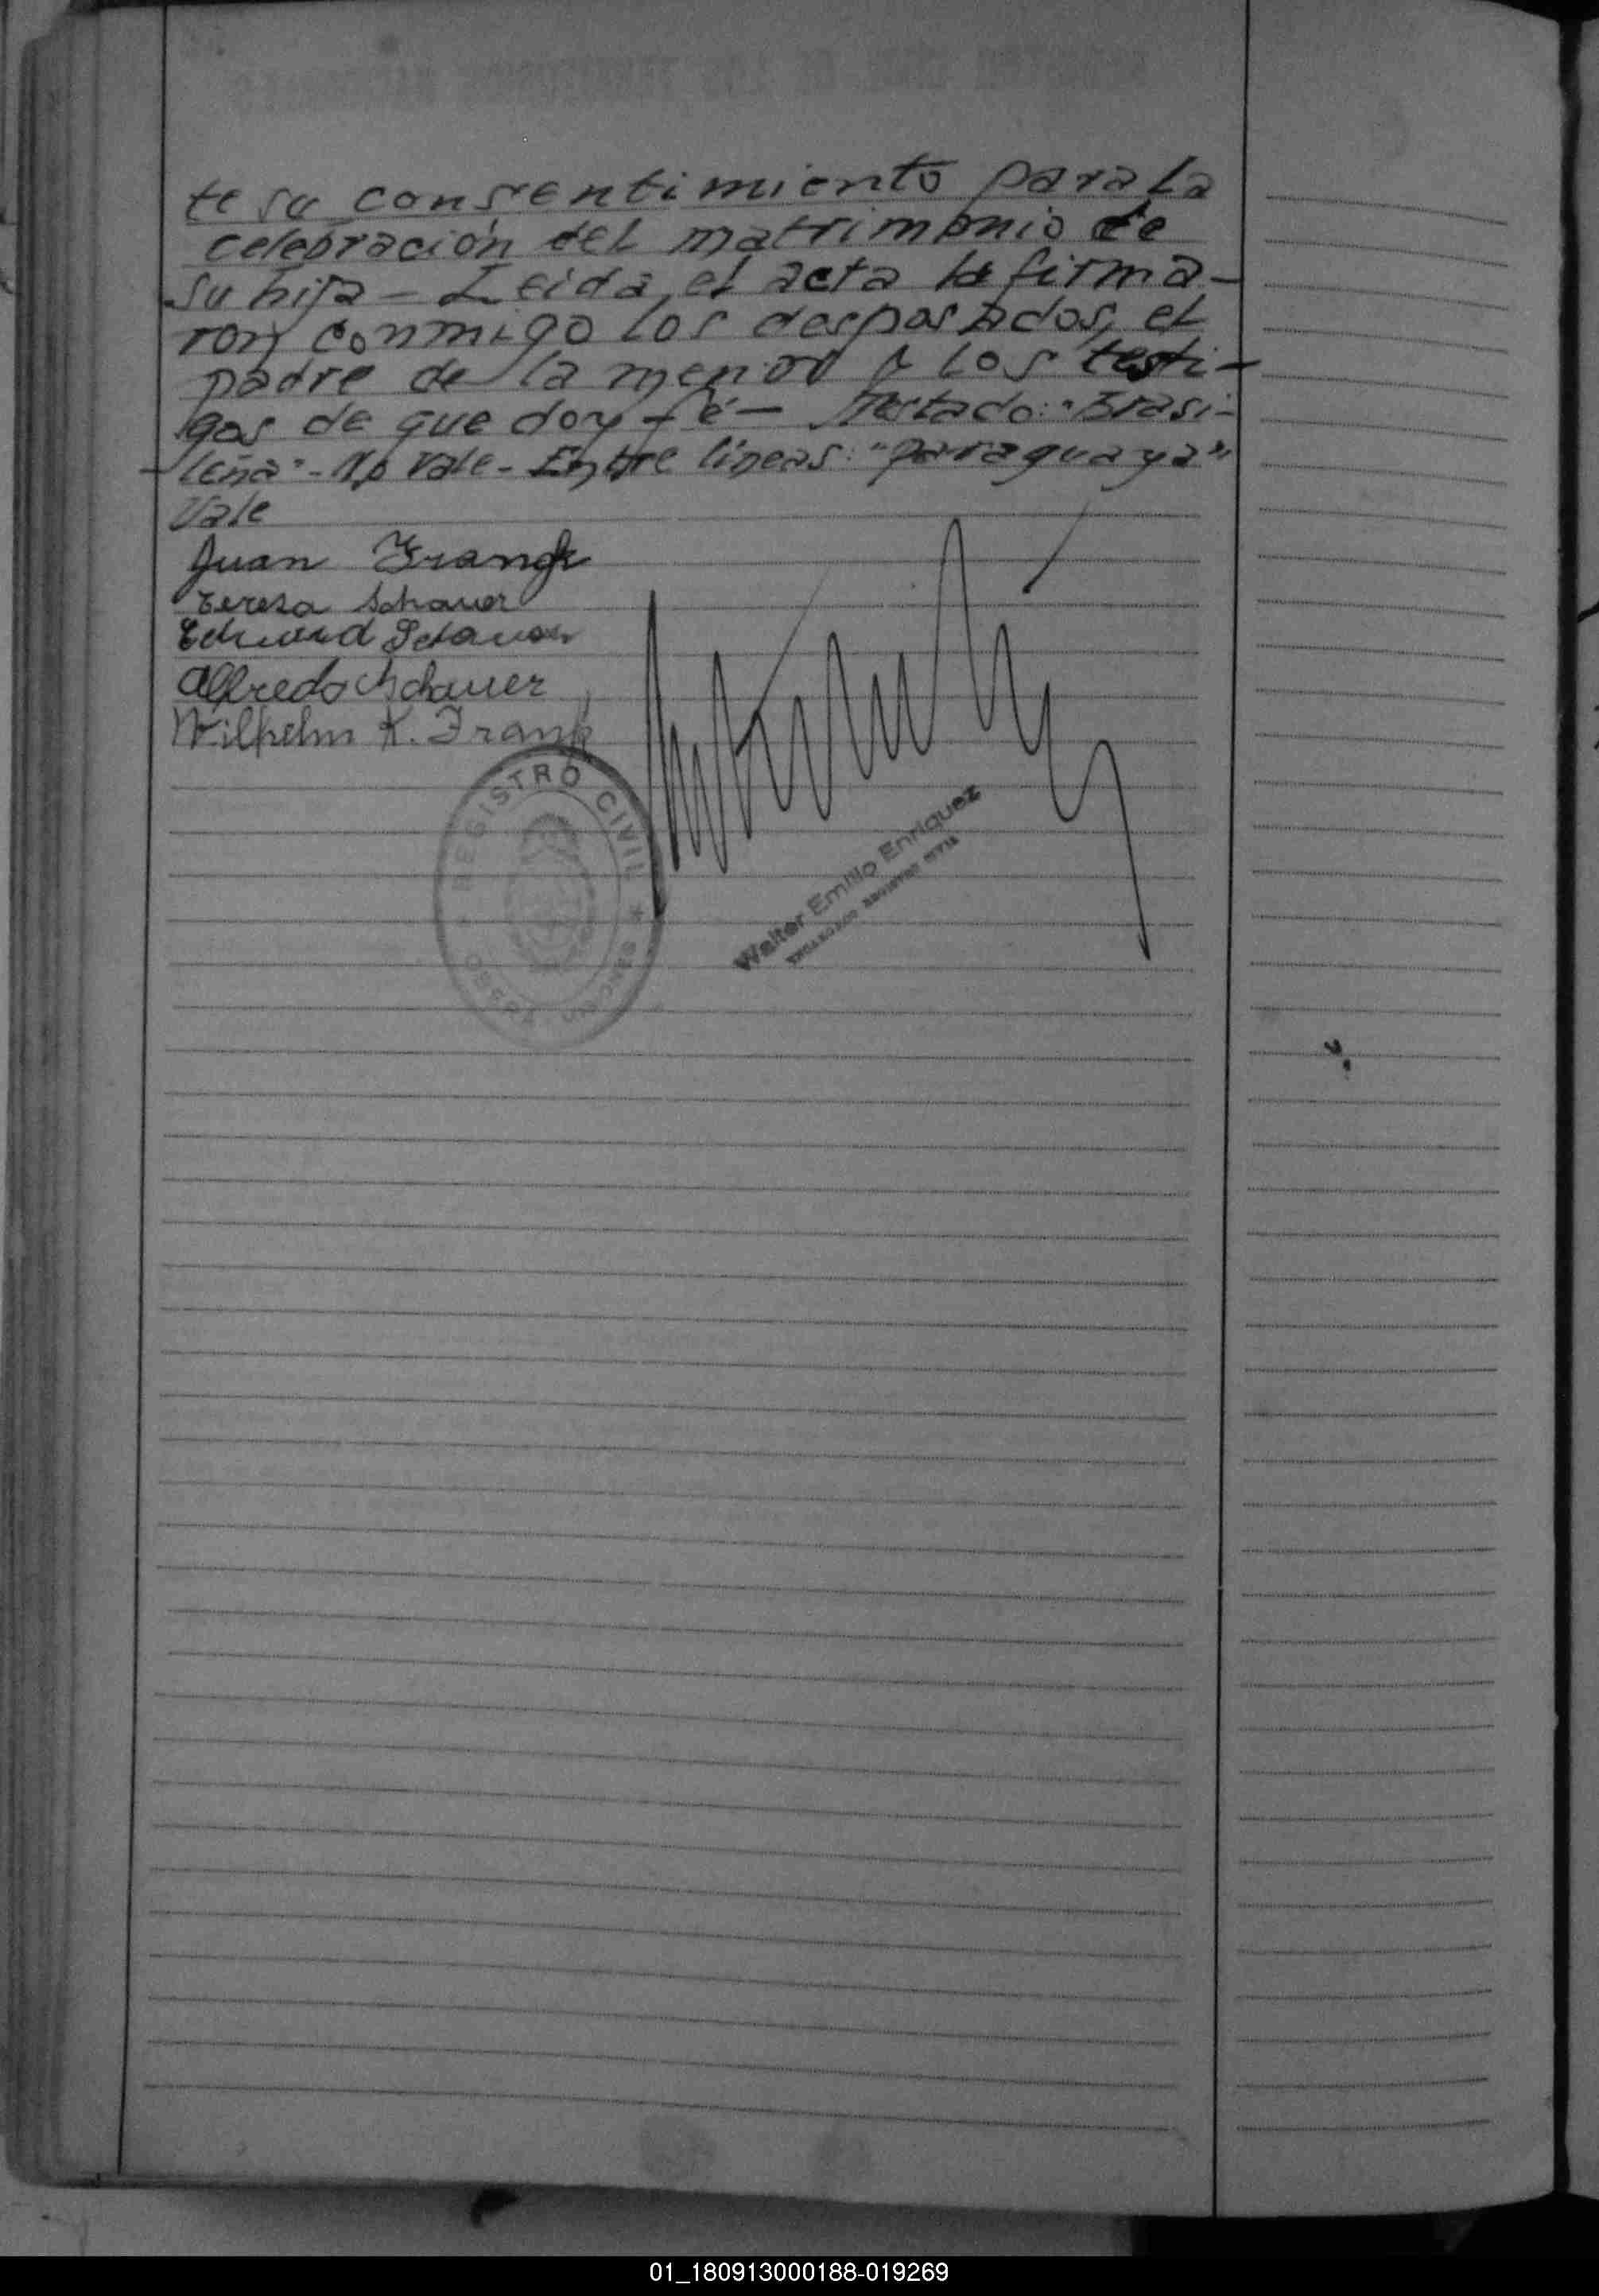 te su consentimiento para la
celebración del matrimonio de
su hija - Leida el acta la firma-
ron conmigo los desposados, el
padre de la menor y los testi-
gos de que doy fé - Testado: "Brasi-
leña" - No vale - Entre lineas: "paraguaya"
Vale
Juan Frank
Teresa Schauer
Eduard Schauer
Alfredo Schauer
Wilhelm K. Frank
REGISTRO CIVIL * SECCION
Walter Emilio Enriquez
ENCARGADO REGISTRO CIVIL
01_180913000188-019269